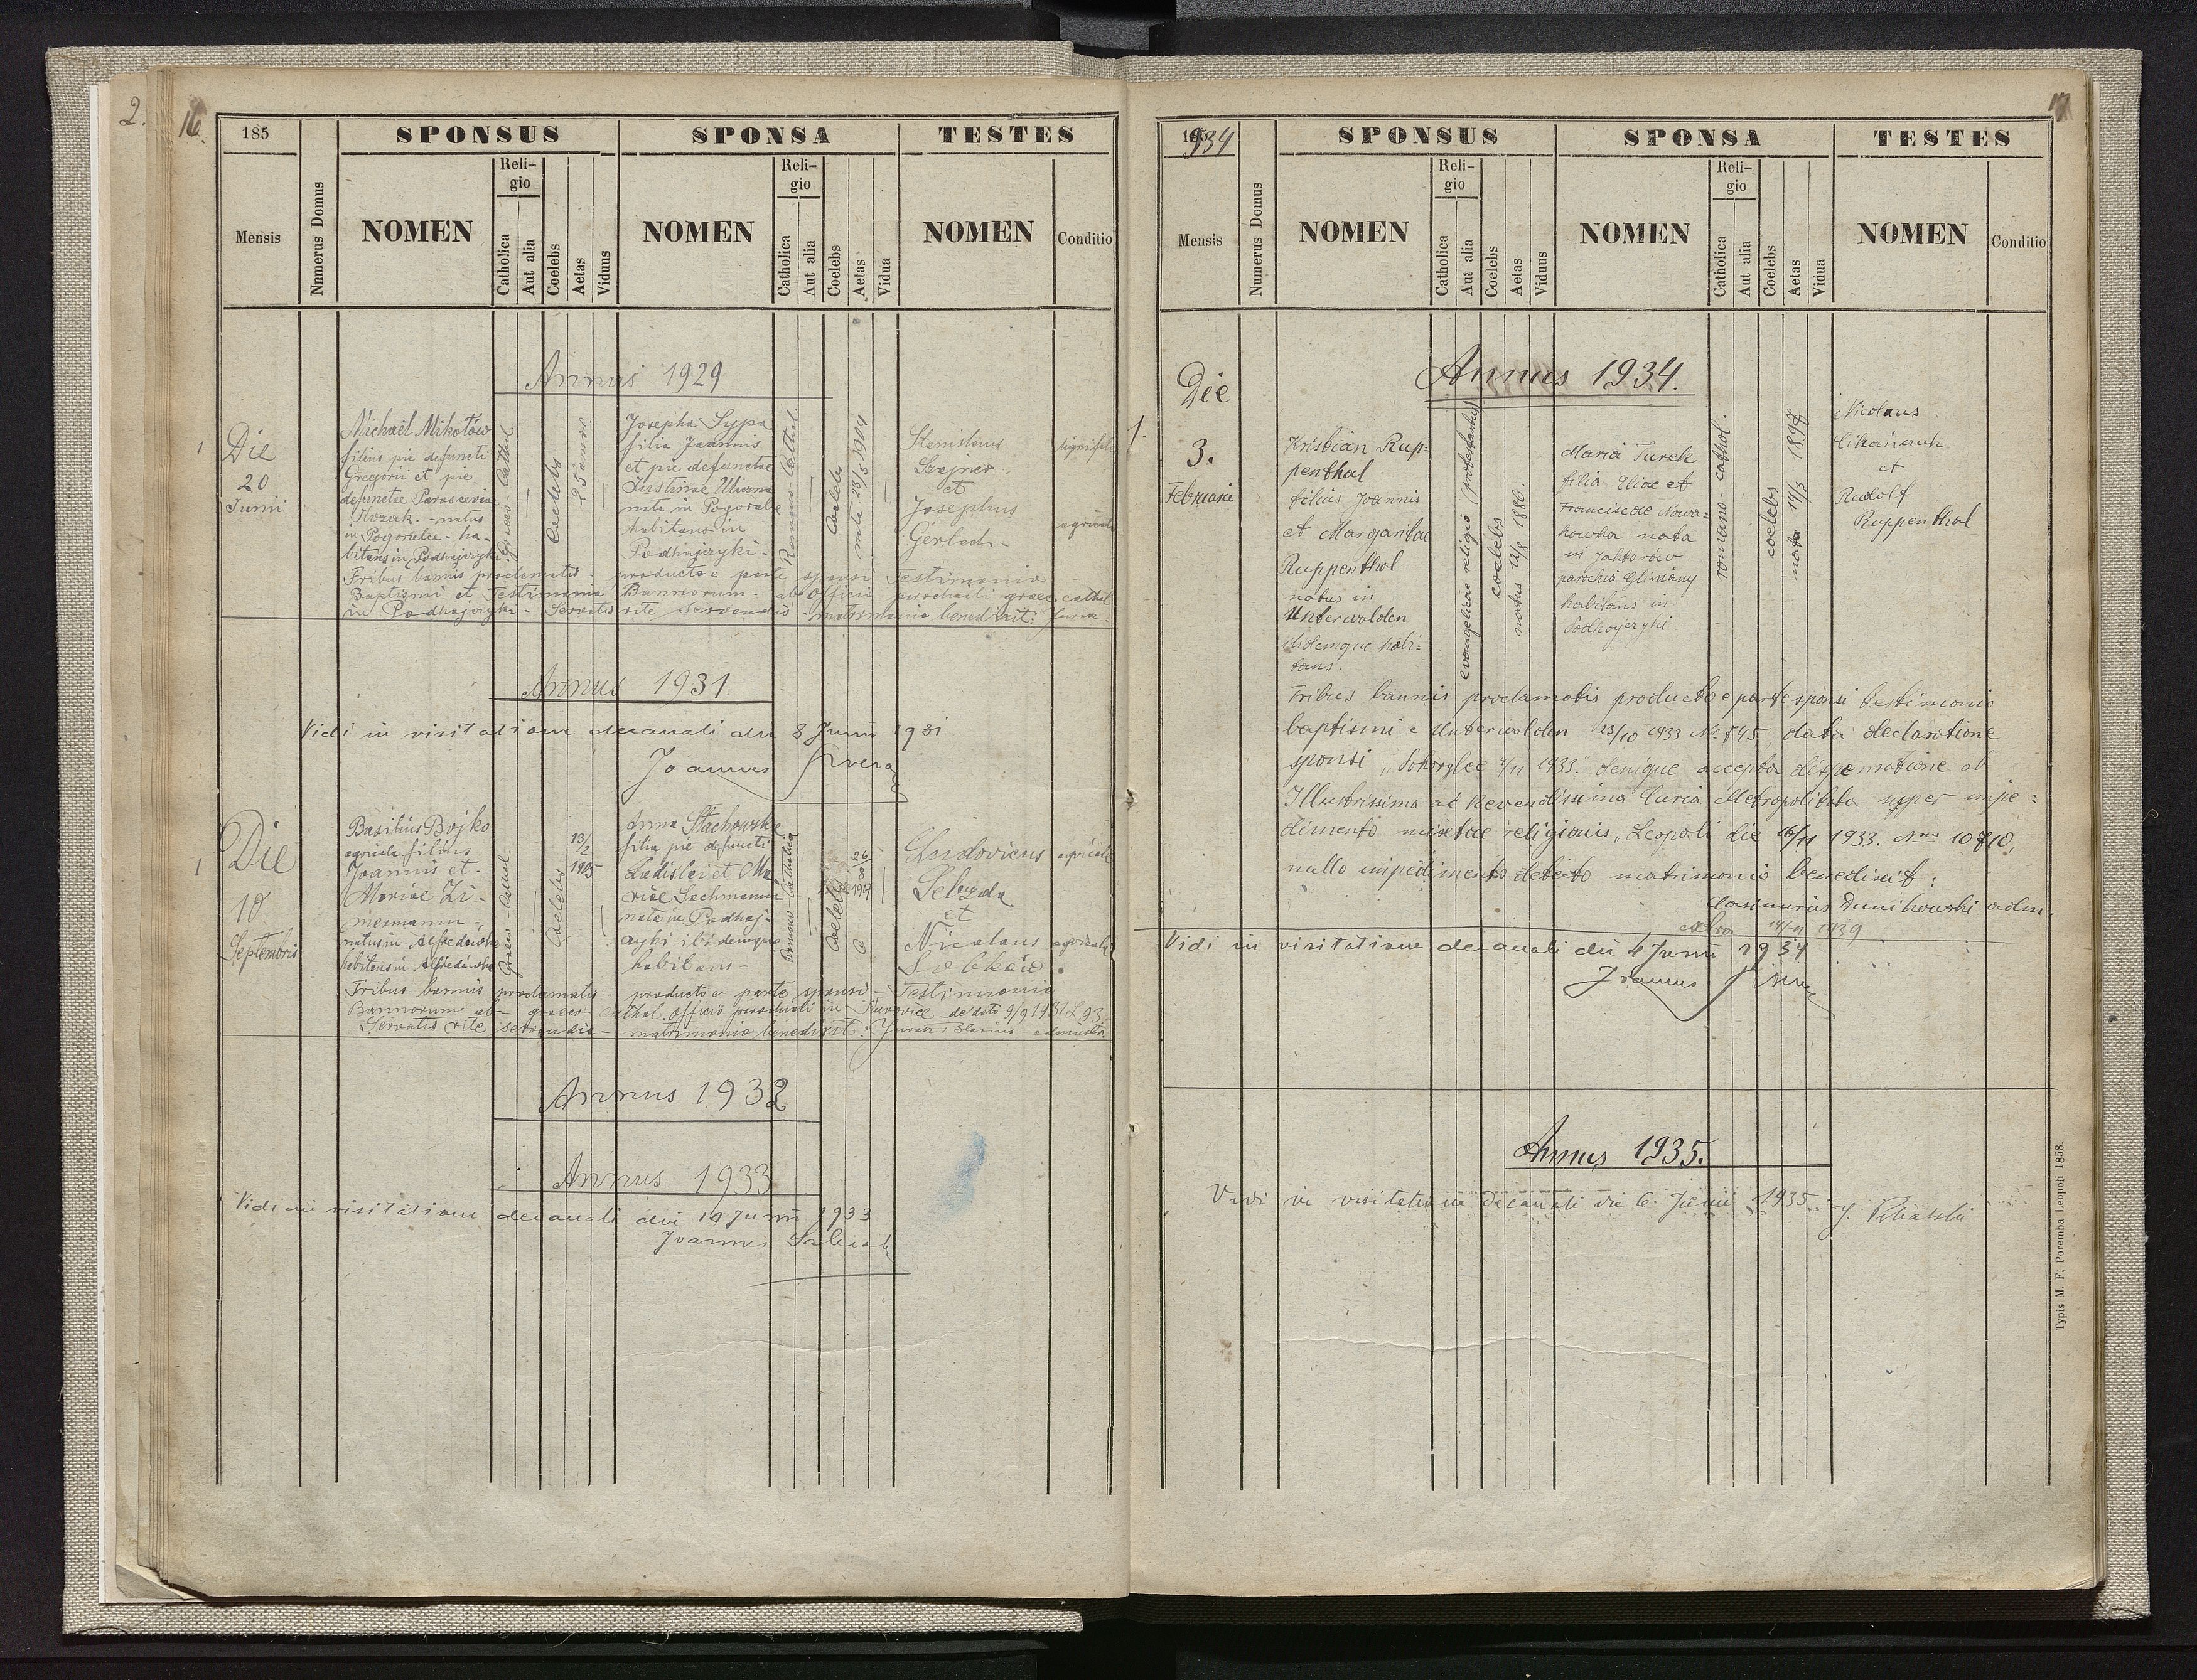 2.
16.
185
SPONSUS
SPONSA
TESTES
Mensis
Numerus Domus
NOMEN
Reli-
gio
Catholica
Aut alia
Coelebs
Aetas
Viduus
NOMEN
Reli-
gio
Catholica
Aut alia
Coelebs
Aetas
Vidua
NOMEN
Conditio
Annus 1929
1
Die
20
Junii
Michaël Mikołów
filius pie defuncti
Gregorii et pie
defunctae Parasceviae
Kozak. - natus
in Pogorielce - ha-
bitans in Podhajczyki
Graeco-Cathol.
Coelebs
25 annor.
Josepha Sypa
filia Joannis
et pie defunctae
Justinae
nata in
habitans in
Podhajczyki -
Romano-Cathol.
Coelebs
nata 28/8 1904
Stanislaus
Szajner -
et
Josephus
Gerlach -
agricola
Tribus bannis proclamatis - producto e parte sponsi Testimonio
Baptismi et Testimonio Bannorum - ab Officio parochiali graec. cathol
in Podhajczyki - Servatis rite servandis - matrimonio benedixit:
Annus 1931
Vidi in visitatione decanali die 8 Junii 1931
Joannes
1
Die
10
Septembris
Basilius Bojko
agricola filius
Joannis et
Mariae Zi-
mermann -
natus in Alfredówka
habitans in Alfredówka
Graeco-Cathol.
Coelebs
13/2
1905
Anna Stachowska
filia pie defuncti
Ladislai et Ma
riae Lachmann
nata in Podhaj-
czyki ibidemque
habitans -
Romano-Catholica
Coelebs
26
8
1907
Ludovicus
et
Nicolaus
agricola
agricola
Tribus bannis proclamatis - producto e parte sponsi - Testimonio
Bannorum ab graeco-cathol. officio parochiali in Kurowice - de dato 9/9 1931 L.93.
Servatis rite servandis - matrimonio benedixit:
Annus 1932
Annus 1933
Vidi in visitatione decanali die 14 Junii 1933
Joannes
17
1934
SPONSUS
SPONSA
TESTES
Mensis
Numerus Domus
NOMEN
Reli-
gio
Catholica
Aut alia
Coelebs
Aetas
Viduus
NOMEN
Reli-
gio
Catholica
Aut alia
Coelebs
Aetas
Vidua
NOMEN
Conditio
Annus 1934.
1.
Die
3.
Februarii
Kristian Rup-
penthal
filius Joannis
et Margaritae
Ruppenthal
natus in
Unterwalden
ibidemque habi=
tans.
evangelicae religio (protestantus)
coelebs
natus 12/8 1886.
Maria Turek
filia Eliae et
Franciscae Nowa=
kowska nata
in Jaktorów
parochia Gliniany
habitans in
Podhajczyki
romano-cathol.
coelebs
nata 14/3 1897
Nicolaus
et
Rudolf
Ruppenthal
Tribus bannis proclamatis producto e parte sponsi testimonio
baptismi e Unterwalden 23/10 1933 Nr. 545. data declaratione
sponsi „Pohorylce 4/11 1933.” denique accepta dispensatione ab
Illustrissima ac Reverendissima Curia Metropolitana super impe=
dimento mixtae religionis „Leopoli die 16/11 1933. Nro 10710,
nullo impedimento detecto matrimonio benedixit:
Casimirus Dunikowski adm.
14/11 1939
Vidi in visitatione decanali die 4 Junii 1934
Joannes
Annus 1935.
Vidi in visitatione decanali die 6. Junii 1935.
Typis M. F. Poremba Leopoli 1858.